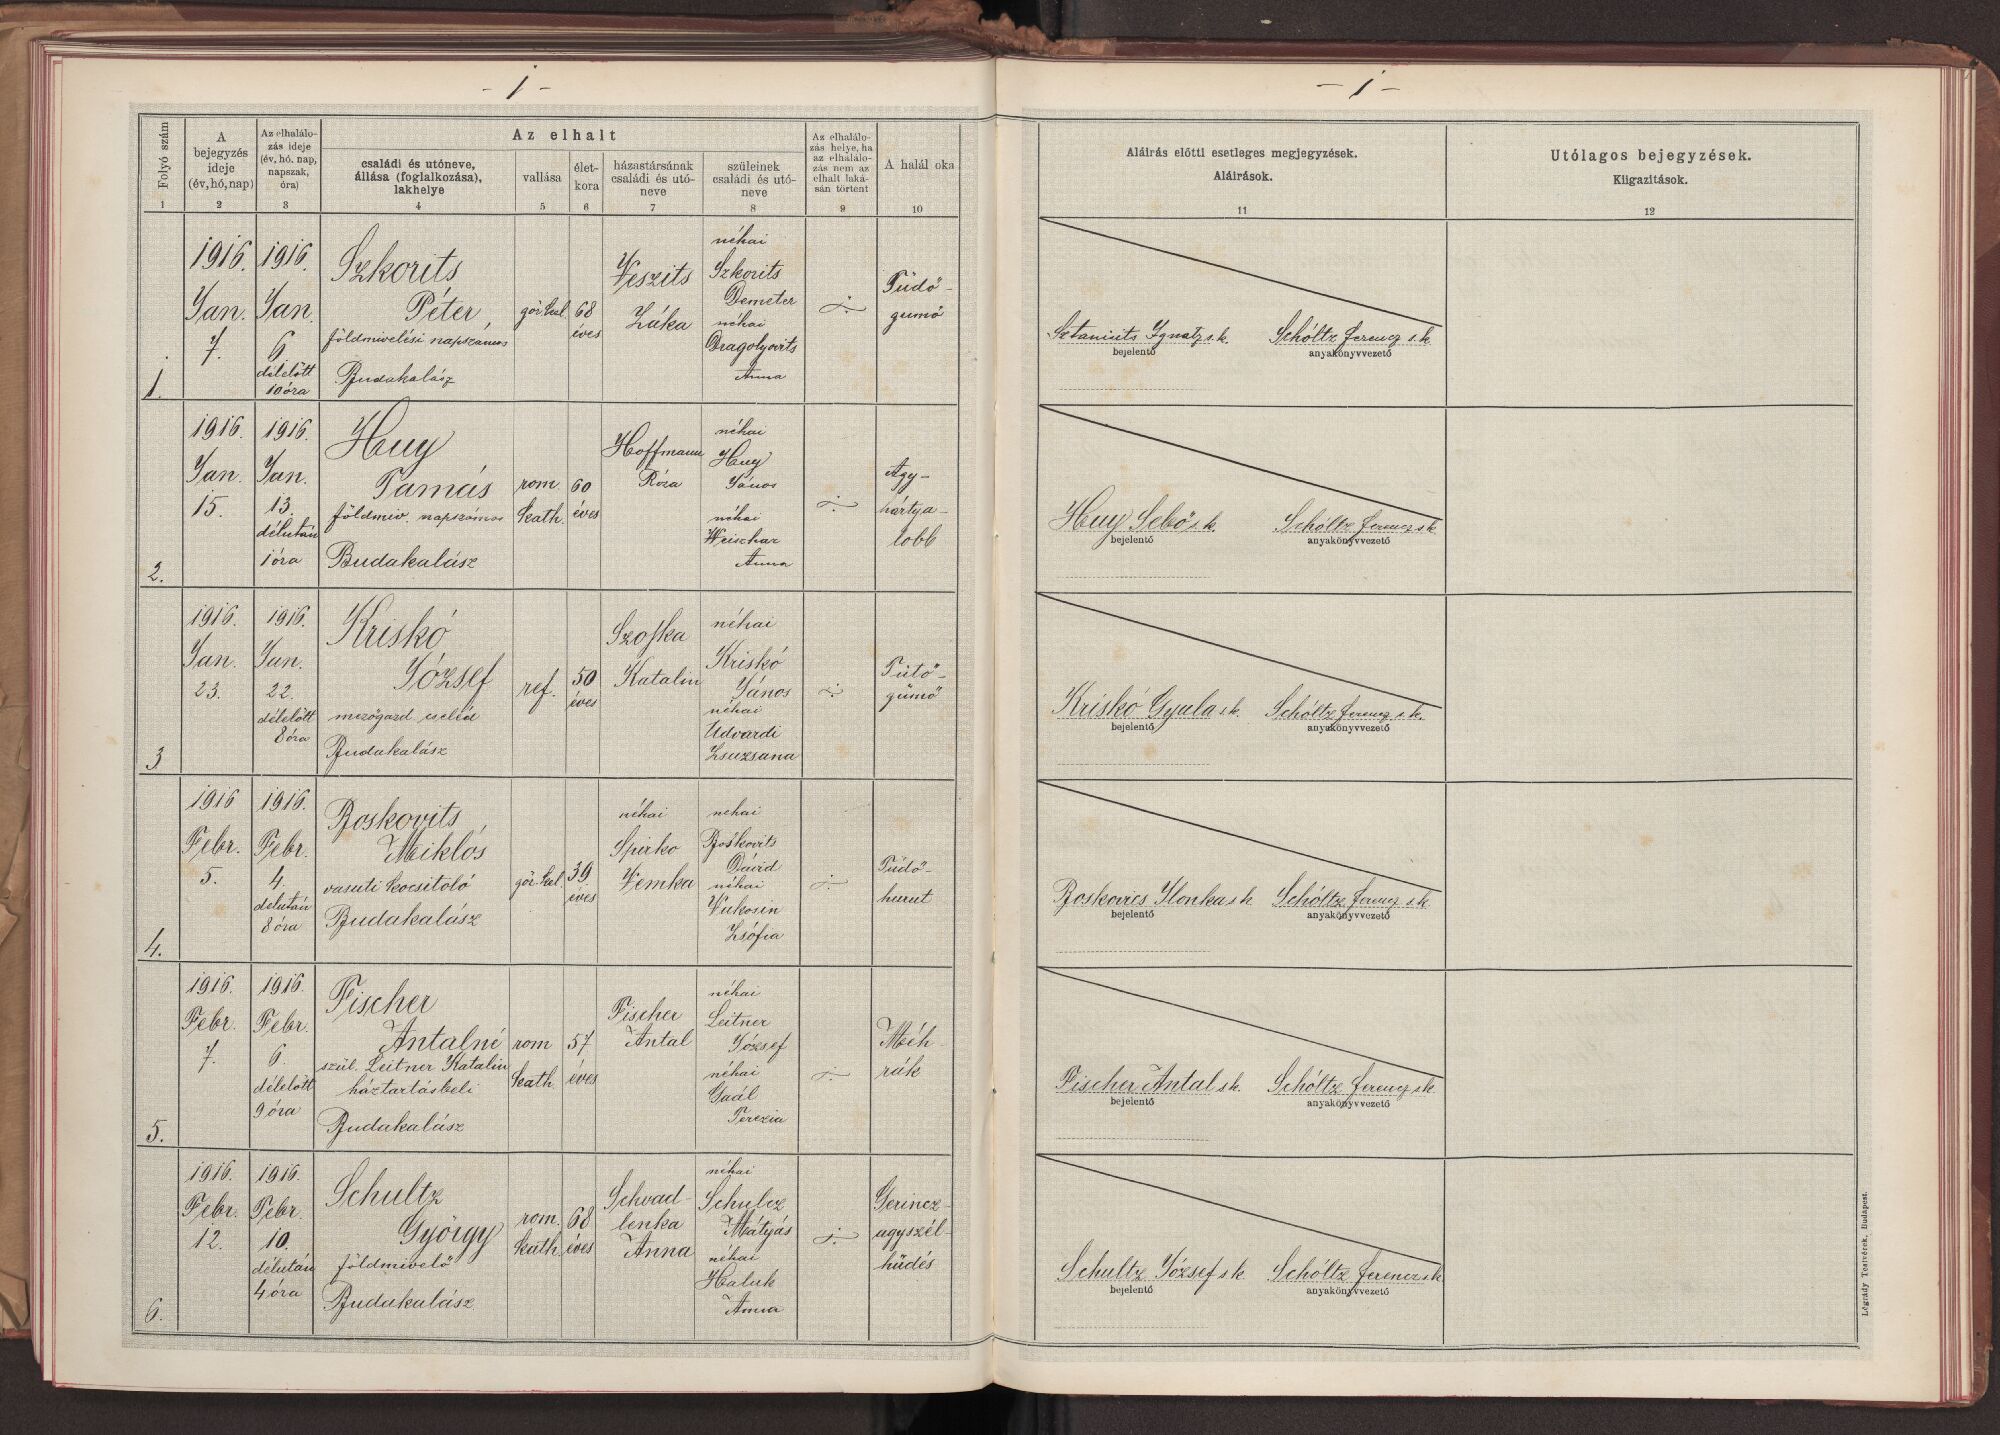 - 1 -
Folyó szám
A bejegyzés ideje (év, hó, nap)
Az elhalálozás ideje (év, hó, nap, napszak, óra)
Az elhalt
családi és utóneve, állása (foglalkozása), lakhelye
vallása
életkora
házastársának családi és utóneve
szüleinek családi és utóneve
Az elhalálozás helye, ha az elhalálozás nem az elhalt lakásán történt
A halál oka
1 2 3 4 5 6 7 8 9 10
1.
1916. Jan. 7.
1916. Jan. 6 délelőtt 10 óra
Szkorits
Péter
földmivelési napszámos
Budakalász
gör. kel.
68 éves
Veszits
Záka
néhai
Szkorits
Demeter
néhai
Dragolyovits
Anna
Tüdő-
gumő
2.
1916. Jan. 15.
1916. Jan. 13. délután 1 óra
Huy
Tamás
földmiv. napszámos
Budakalász
rom. kath.
60 éves
Hoffmann
Róza
néhai
Huy
János
néhai
Weiszhar
Anna
Agy-
hártya-
lobb
3
1916. Jan. 23.
1916. Jan. 22. délelőtt 8 óra
Kriskó
József
mezőgazd. cseléd
Budakalász
ref.
50 éves
Szofka
Katalin
néhai
Kriskó
János
néhai
Udvardi
Zsuzsana
Tütő-
gümő
4.
1916 Febr. 5.
1916. Febr. 4. délután 8 óra
Boskovits
Miklós
vasuti kocsitoló
Budakalász
gör. kel.
39 éves
néhai
Spirko
Vemka
nehai
Boskovits
Dávid
néhai
Vukosin
Zsófia
Tüdő-
hurut
5.
1916. Febr. 7.
1916. Febr. 6 délelőtt 9 óra
Fischer
Antalné
szül. Leitner Katalin
háztartásbeli
Budakalász
rom kath.
57 éves
Fischer
Antal
néhai
Leitner
József
néhai
Gaál
Terezia
Méh-
rák
6.
1916. Febr. 12.
1916. Febr. 10. délután 4 óra
Schultz
György
földmivelő
Budakalász
rom. kath.
68 éves
Schvad-
lenka
Anna
néhai
Schulcz
Mátyás
néhai
Haluk
Anna
Gerincz-
agyszél-
hüdés
- 1 -
Aláírás előtti esetleges megjegyzések.
Aláírások.
11
Utólagos bejegyzések.
Kiigazítások.
12
Sztanicits Ignatz s.k. Schóltz Ferencz s.k.
bejelentő anyakönyvvezető
Huy Sebő s.k. Schóltz Ferencz s k
bejelentő anyakönyvvezető
Kriskó Gyula s.k. Schóltz Ferencz s.k.
bejelentő anyakönyvvezető
Boskovics Ilonka s k Schóltz Ferencz s k
bejelentő anyakönyvvezető
Fischer Antal s.k. Schóltz Ferencz s k
bejelentő anyakönyvvezető
Schultz József s k Schóltz Ferencz s k
bejelentő anyakönyvvezető
Légrády Testvérek, Budapest.